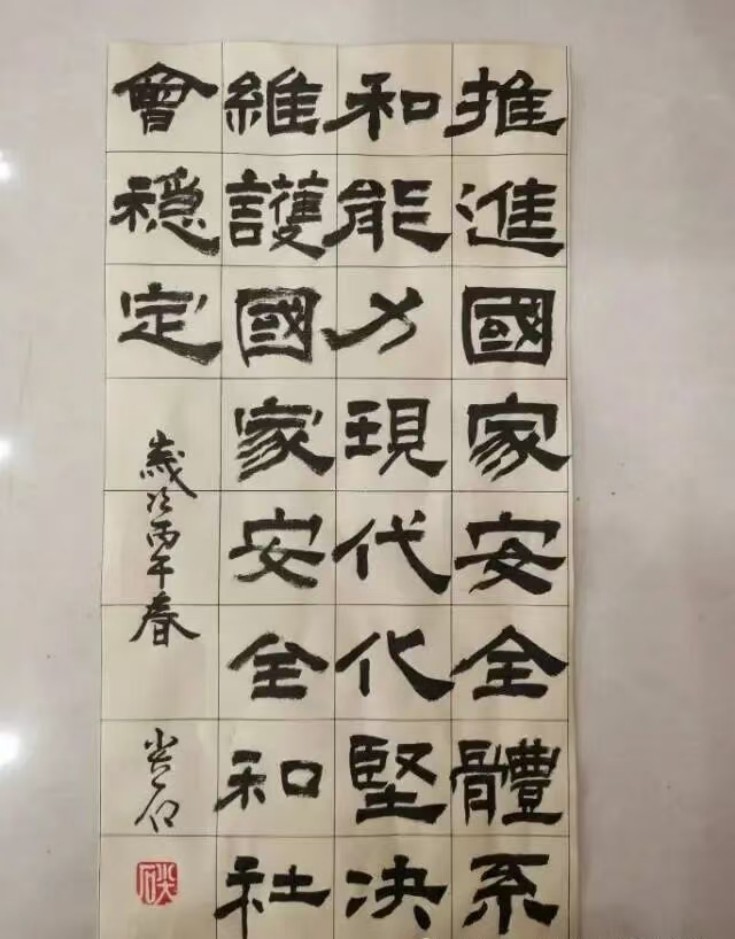 推進國家安全體系
和能力現代化堅決
維護國家安全和社
會穩定
歲次丙午春
尖石